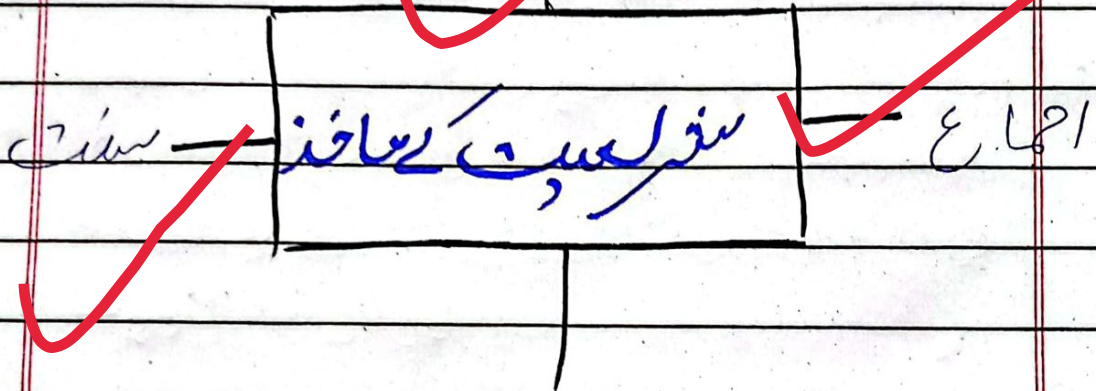 اجماع
شریعت کے ماخذ
سنت